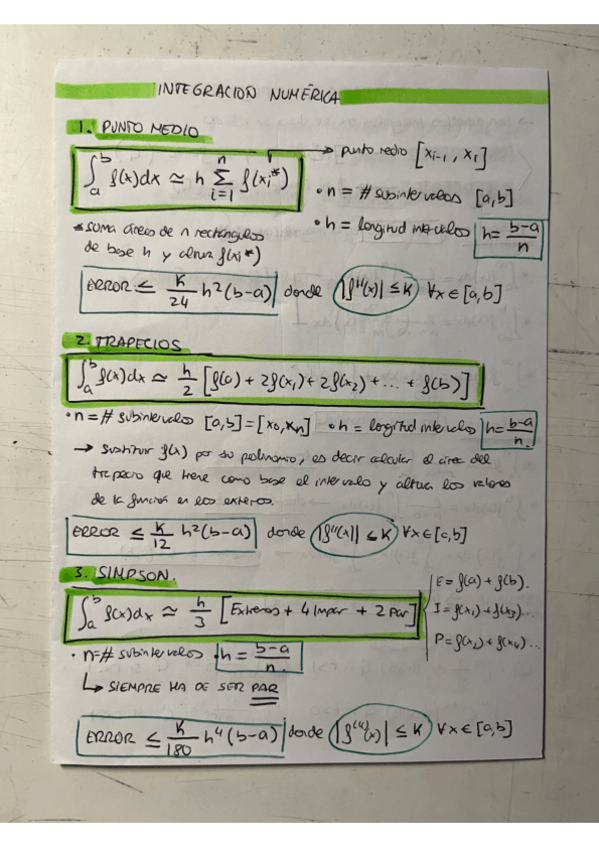 INTEGRACION NUMÉRICA
1. PUNTO MEDIO
∫_a^b f(x)dx ≃ h Σ_{i=1}^n f(xi*) → punto medio [xi-1, xi]
• n = # subintervalos [a,b]
• h = longitud intervalos h = b-a/n
* suma áreas de n rectángulos
de base h y altura f(xi*)
ERROR ≤ K/24 h²(b-a) donde |f''(x)| ≤ K ∀x ∈ [a,b]
2. TRAPECIOS
∫_a^b f(x)dx ≃ h/2 [f(a) + 2f(x₁) + 2f(x₂) + ... + f(b)]
• n = # subintervalos [a,b] = [x₀,xn] • h = longitud intervalos h = b-a/n.
→ sustituir f(x) por su polinomio, es decir calcular el área del
trapecio que tiene como base el intervalo y altura los valores
de la función en los extremos.
ERROR ≤ K/12 h²(b-a) donde |f''(x)| ≤ K ∀x ∈ [a,b]
3. SIMPSON.
∫_a^b f(x)dx ≃ h/3 [Extremos + 4 Impar + 2 Par]
E = f(a) + f(b).
I = f(x₁) + f(x₃)...
P = f(x₂) + f(x₄)...
• n = # subintervalos • h = b-a/n.
↳ SIEMPRE HA DE SER PAR
ERROR ≤ K/180 h⁴(b-a) donde |f⁽⁴⁾(x)| ≤ K ∀x ∈ [a,b]